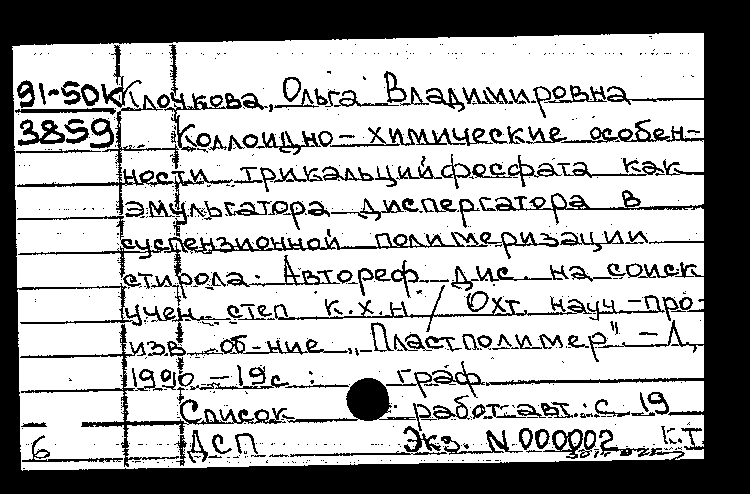 91-5ДК Клочкова, Ольга Владимировна
3859 Коллоидно-химические особен-
ности трикальцийфосфата как
эмульгатора диспергатора в
суспензионной полимеризации
стирола. Автореф. дис. на соиск
учен. степ к.х.н / Охт. науч.-про-
изв об-ние „Пластполимер". - Л.,
1990 - 19с : граф
Список работ авт.: с. 19
6 ДСП Экз. N 000002 К.Т.